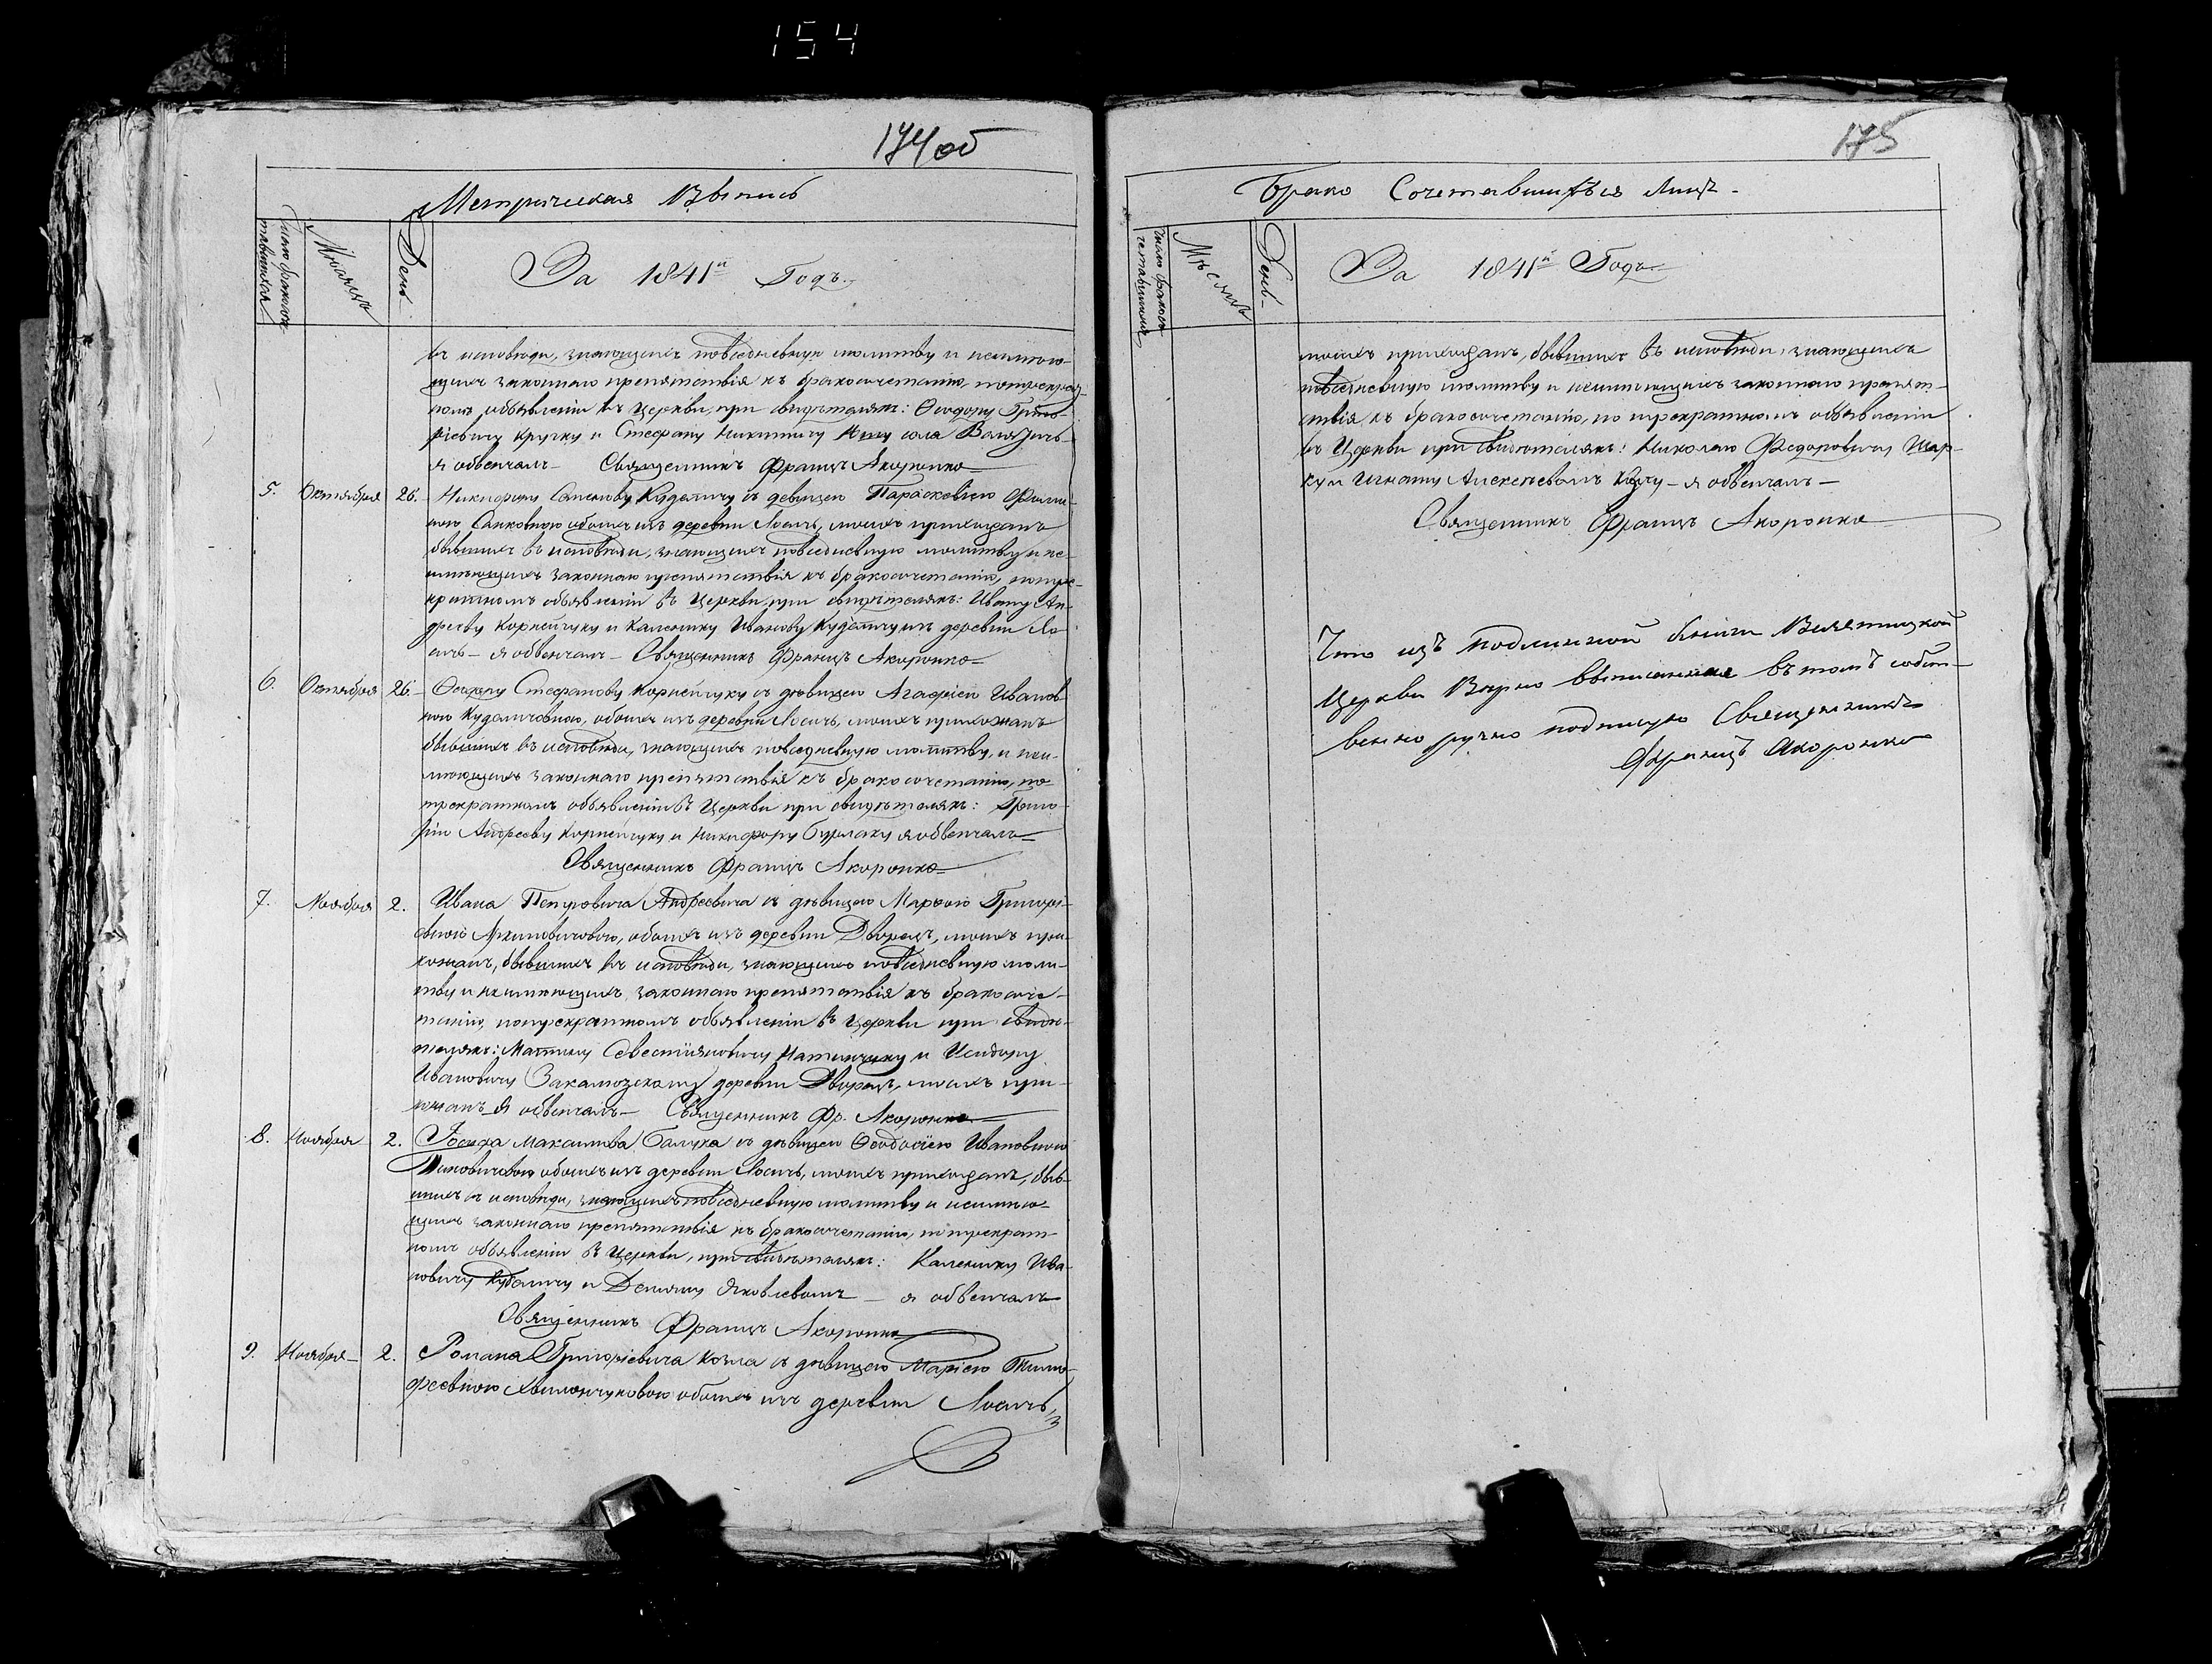 154
174об
Метрическая Выпись
Число браков сочетавшихся
Месяцъ
День
За 1841й Годъ.
въ исповѣди, знающихъ повседневную молитву и неимѣю-
щихъ законнаго препятствія къ бракосочетанію, по трекрат-
номъ объявленіи въ Церкви, при свидѣтеляхъ: Ѳеодору Григо-
рiевичу Кручку и Стефану Никитичу села
я обвенчалъ Священникъ Францъ Акоронко
5. Октября 26. Никифору Кудѣличу съ девицею Параскевіею
обоихъ изъ деревни Лосичь, моихъ прихожанъ
бывшихъ въ исповѣди, знающихъ повседневную молитву и не-
имѣющихъ законнаго препятствія къ бракосочетанію, по тре-
кратномъ объявленіи въ Церкви, при свидѣтеляхъ: Ивану Ан-
дрееву Корнейчуку и Каленику Иванову Кудѣличу изъ деревни Ло
сичь я обвенчалъ Священникъ Францъ Акоронко
6. Октября 26. Ѳеодору Стефанову Корнейчуку съ дѣвицею Агафіею Иванов
ною Кудѣличовною, обоихъ изъ деревни Лосичь, моихъ прихожанъ
бывшихъ въ исповѣди, знающихъ повседневную молитву, и неи-
мѣющихъ законнаго препятствія къ бракосочетанію, по
трекратномъ объявленіи въ Церкви при свидѣтеляхъ: Григо-
рію Андрееву Корнейчуку и Никифору Бурлаку я обвенчалъ
Священникъ Францъ Акоронко
7. Ноября 2. Ивана Петровича Андреевича съ дѣвицею Марѳою Григорі-
евною обоихъ изъ деревни Дворецъ, моихъ при-
хожанъ, бывшихъ въ исповѣди, знающихъ повседневную моли-
тву и неимѣющихъ законнаго препятствія къ бракосоче-
танію, по трекратномъ объявленіи въ Церкви при свидѣ-
теляхъ: и Исидору
Ивановичу деревни Дворецъ, моихъ при-
хожанъ я обвенчалъ Священникъ Фр. Акоронко
8. Ноября 2. Іосифа Максимова съ дѣвицею Ѳеодосіею Ивановною
обоихъ изъ деревни Лосичь, моихъ прихожанъ, быв-
шихъ въ исповѣди, знающихъ повседневную молитву и неимѣю-
щихъ законнаго препятствія къ бракосочетанію, по трекрат
номъ объявленіи въ Церкви, при свидѣтеляхъ: Каленику Ива-
новичу Кудѣличу и Демяну Яковлевомъ я обвенчалъ
Священникъ Францъ Акоронко
9. Ноября 2. Романа Григоріевича Козла съ дѣвицею Маріею Тимо-
феевною обоихъ изъ деревни Лосичь,
175
Брако Сочетавшихся Лицъ
Число браков сочетавшихся
Мѣсяцъ
День
За 1841й Годъ
моихъ прихожанъ, бывшихъ въ исповѣди, знающихъ
повседневную молитву и неимѣющихъ законнаго препят-
ствія къ бракосочетанію, по трекратномъ объявленіи
въ Церкви при свидѣтеляхъ: Николаю Федоровичу Шар-
ку и Игнату Алексѣевомъ Козлу я обвенчалъ
Священникъ Францъ Акоронко
Что изъ подлинной книги
Церкви Вѣрно выписанная въ томъ собст-
венно ручно подписую Священникъ
Францъ Акоронко